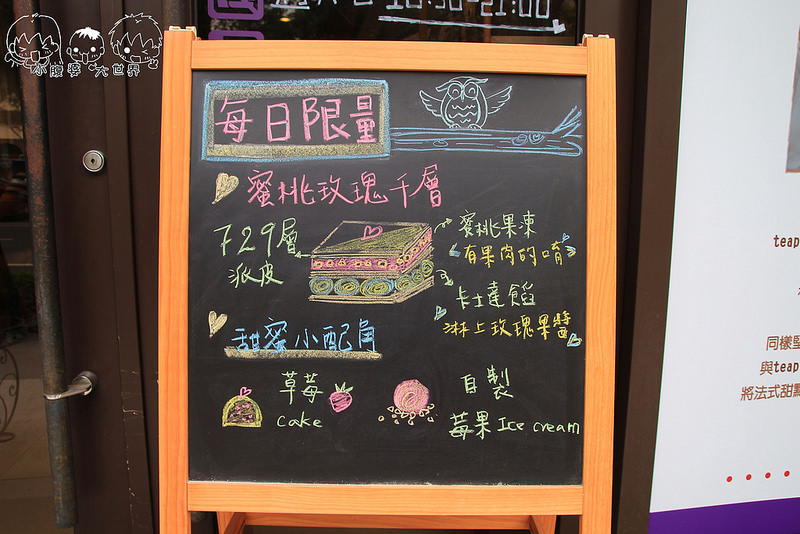 10:30~21:00
小腹婆大世界
每日限量
蜜桃玫瑰千層
729層
派皮
蜜桃果凍
有果肉的唷
卡士達餡
淋上玫瑰果醬
甜蜜小配角
草莓
cake
自製
莓果 Ice cream
teap
同樣堅
與teap
將法式甜點